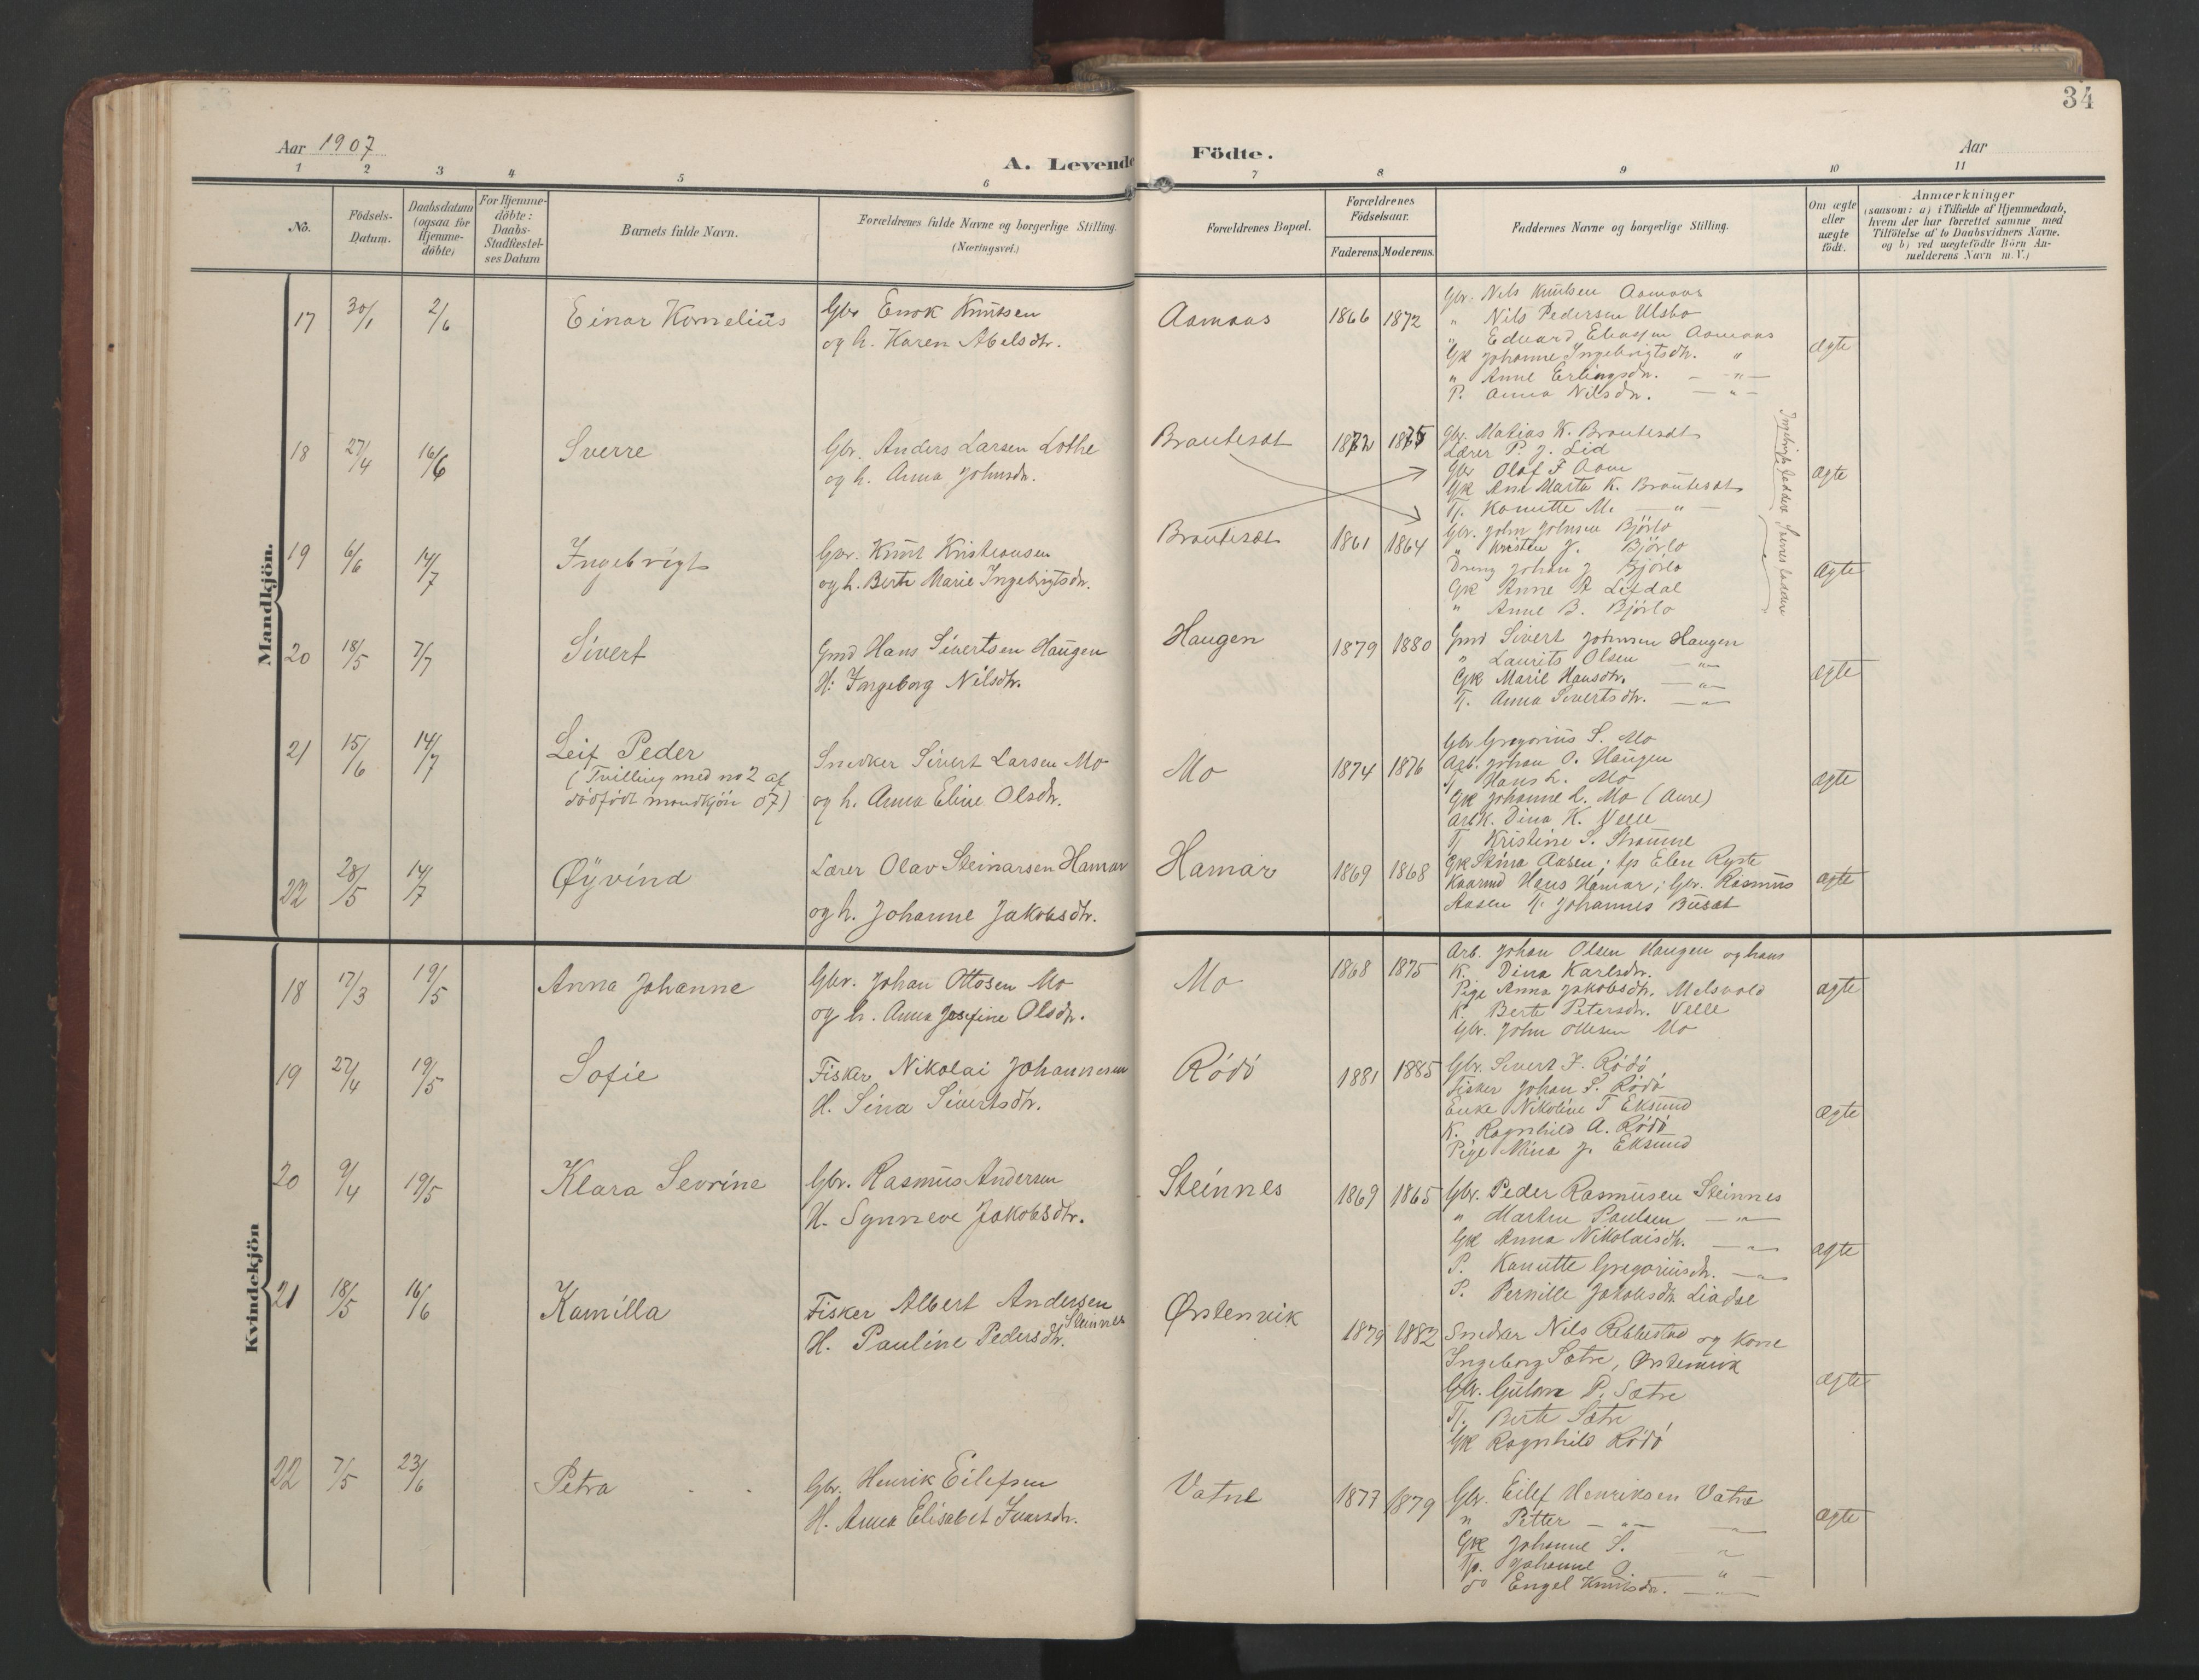 34
Aar 1907
A. Levende Födte.
Aar
1 2 3 4 5 6 7 8 9 10 11
No.
Födsels-
Datum.
Daabsdatum
(ogsaa for
Hjemme-
döbte)
For Hjemme-
döbte:
Daabs-
Stadfæstel-
ses Datum
Barnets fulde Navn.
Forældrenes fulde Navne og borgerlige Stilling.
(Næringsvei.)
Forældrenes Bopæl.
Forældrenes
Födselsaar.
Faderens. Moderens.
Faddernes Navne og borgerlige Stilling.
Om ægte
eller
uægte
födt.
Anmærkninger
(saasom: a) i Tilfælde af Hjemmedaab,
hvem der har forrettet samme med
Tilföielse af to Daabsvidners Navne.
og b) ved uægtefödte Börn An-
melderens Navn m.V.)
Mandkjön.
17 30/1 2/6 Einar Kornelius
Gbr Enok Knutsen
og h. Karen Abelsdtr.
Aamaas 1866 1872
Gbr. Nils Knutsen Aamaas
" Nils Pedersen Ulsbo
" Edvard Aamaas
Gk Johanne Ingebrigtsdtr. "
" Anne Erlingsdtr. — " —
P. Anna Nilsdtr. — " —
ægte
18 27/4 16/6 Sverre
Gbr. Anders Larsen Lothe
og h. Anna Johnsdtr.
Brautesæt 1872 1875
Gbr. Matias K. Brautesæt
Lærer P. J. Lid
Gbr Olaf F Aam
Gk Ane Marta K. Brautesæt
Tj. Kanutte M. — " —
ægte
Ingebrigts faddere
Sverres faddere
19 6/6 14/7 Ingebrigt
Gbr. Knut Kristiansen
og h. Berte Marie Ingebrigtsdtr.
Brautesæt 1861 1864
Gbr. John Johnsen Bjørlo
" Kristen J. Bjørlo
Dreng Johan J Bjørlo
Gk Anne A Lifdal
" Anne B. Bjørlo
ægte
20 18/5 7/7 Sivert
Gmd Hans Sivertsen Haugen
H: Ingeborg Nilsdtr.
Haugen 1879 1880
Gmd Sivert Johnsen Haugen
" Laurits Olsen — " —
Gk Marie Hansdtr. — " —
Tj. Anna Sivertsdtr. — " —
ægte
21 15/6 14/7 Leif Peder
(Tvilling med no 2 af
dødfødt mandkjøn 07)
Snedker Sivert Larsen Mo
og h. Anna Eline Olsdtr.
Mo 1874 1876
Gbr Gregorius S. Mo
Arb. Johan O. Haugen
Tj Hans L. Mo
Gk Johanne L. Mo (Aure)
Arbk. Dina K. Velle
Tj Kristine S. Strømme
ægte
22 28/5 14/7 Øyvind
Lærer Olav Steinarsen Hamar
og h. Johanne Jakobsdtr.
Hamar 1869 1868
Gk Stina Aasen; tp Elen Ryste
Kaarmd Hans Hamar; Gbr. Rasmus
Aasen Tj. Johannes Busæt
ægte
Kvindekjön
18 17/3 19/5 Anna Johanne
Gbr. Johan Ottosen Mo
og h. Anna Josefine Olsdtr.
Mo 1868 1875
Arb. Johan Olsen Haugen og hans
K. Dina Karlsdtr.
Pige Anna Jakobsdtr. Melsvold
K. Berte Petersdtr. Velle
Gbr. John Ottesen Mo
ægte
19 27/4 19/5 Sofie
Fisker Nikolai Johannesen
H. Sina Sivertsdtr.
Rödö 1881 1885
Gbr. Sivert F. Rödö
Fisker Johan S. Rödö
Enke Nikoline T Eksund
K. Ragnhild A. Rödö
Pige Nina J. Eksund
ægte
20 9/4 19/5 Klara Sevrine
Gbr. Rasmus Andersen
H. Synneve Jakobsdtr.
Steinnes 1869 1865
Gbr. Peder Rasmusen Steinnes
" Marten Paulsen — " —
Gk Anna Nikolaisdtr. — " —
P. Kanutte Gregoriusdtr. — " —
P. Pernille Jakobsdtr. Liadal
ægte
21 18/5 16/6 Kamilla
Fisker Albert Andersen
Steinnes
H. Pauline Pedersdtr.
Ørstenvik 1879 1882
Snedker Nils Rebbestad og Kone
Ingeborg Sætre, Ørstenvik
Gbr. P. Sætre
Tj. Berte Sætre
Gk Ragnhild Rödö
ægte
22 7/5 23/6 Petra
Gbr. Henrik Eilefsen
H. Anna Elisabet Ivarsdtr.
Vatne 1877 1879
Gbr. Eilef Henriksen Vatne
" Petter — " — — " —
Gk Johanne S. "
Tp. Johanne O — " —
do Engel Knutsdtr. — " —
ægte